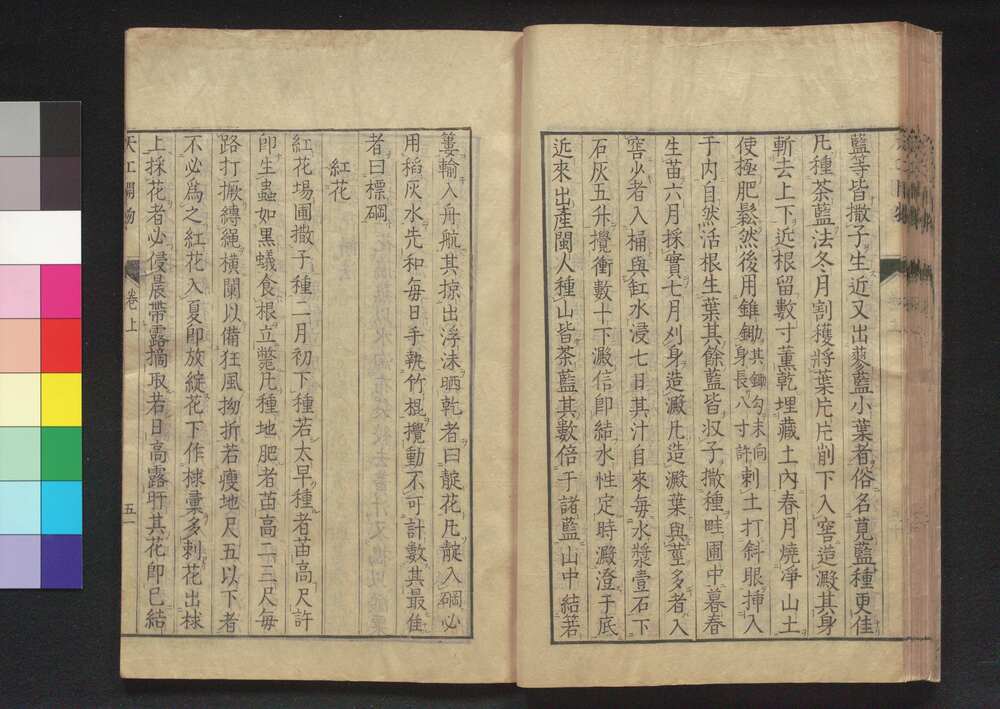 藍等皆撒子生近又出蓼藍小葉者俗名莧藍種更佳
凡種茶藍法冬月割穫將葉片片削下入窖造澱其身
斬去上下近根留數寸薰乾埋藏土內春月燒凈山土
使極肥鬆然後用錐鋤其鋤勾末向身長八寸許刺土打斜眼插入
于內自然活根生葉其餘藍皆收子撒種畦圃中暮春
生苗六月採實七月刈身造澱凡造澱葉與莖多者入
窖少者入桶與缸水浸七日其汁自來每水漿壹石下
石灰五升攪衝數十下澱信即結水性定時澱澄于底
近來出產閩人種山皆茶藍其數倍于諸藍山中結箬
簍輸入舟航其掠出浮沫晒乾者曰靛花凡靛入缸必
用稻灰水先和每日手執竹棍攪動不可計數其最佳
者曰標缸
紅花
紅花場圃撒子種二月初下種若太早種者苗高尺許
即生蟲如黑蟻食根立斃凡種地肥者苗高二三尺每
路打橛縛繩橫闌以備狂風拗折若瘦地尺五以下者
不必為之紅花入夏即放綻花下作梂彙多刺花出梂
上採花者必侵晨帶露摘取若日高露旰其花即已結
天工開物
卷上
五一